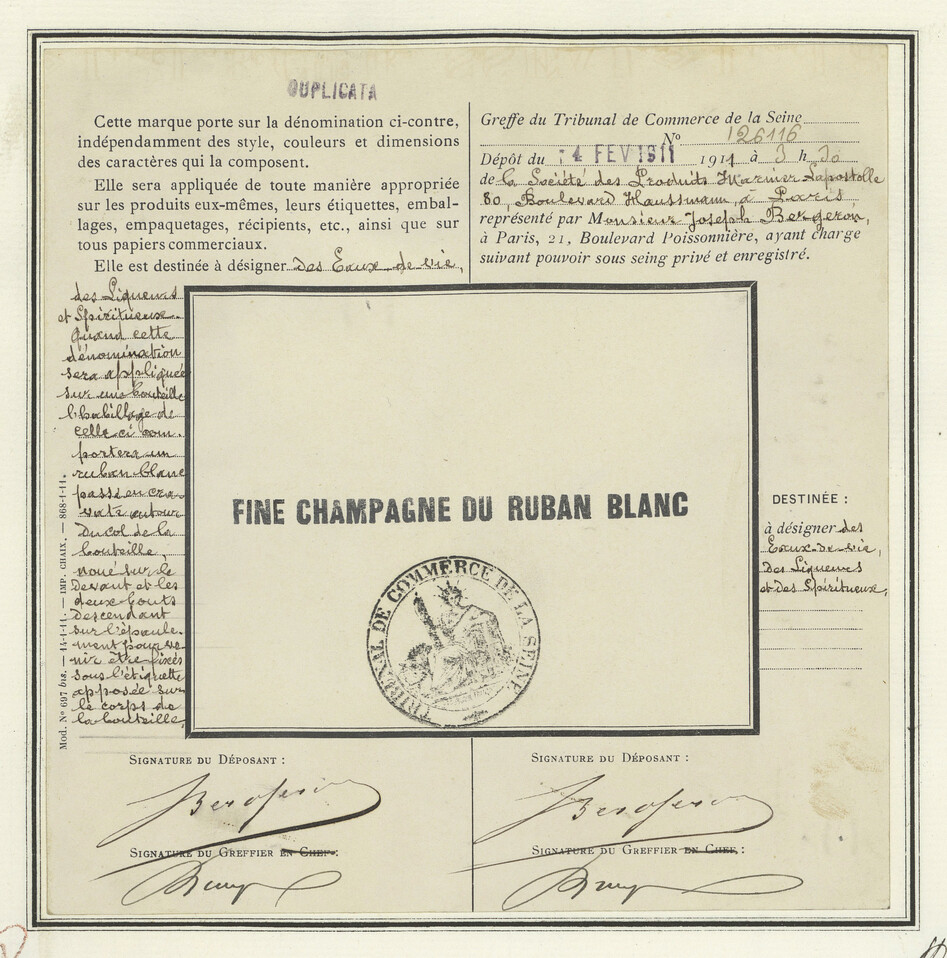 DUPLICATA
Cette marque porte sur la dénomination ci-contre,
indépendamment des style, couleurs et dimensions
des caractères qui la composent.
Elle sera appliquée de toute manière appropriée
sur les produits eux-mêmes, leurs étiquettes, embal-
lages, empaquetages, récipients, etc., ainsi que sur
tous papiers commerciaux.
Elle est destinée à désigner des Eaux-de-vie,
des Liqueurs
et Spiritueux.
Quand cette
dénomination
sera appliquée
sur une bouteille
l'habillage de
celle ci com-
portera un
ruban blanc
passé en cra-
vate autour
du col de la
bouteille,
noué sur le
devant et les
deux bouts
descendant
sur l'épaule-
ment pour ve-
nir être fixés
sous l'étiquette
apposée sur
le corps de
la bouteille,
Mod. No 697 bis. — 14-1-11. — IMP. CHAIX. — 868-1-11.
Greffe du Tribunal de Commerce de la Seine
No 126116
Dépôt du 4 FEV 1911 1911 à 3 h 30
de la Société des Produits Marnier Lapostolle
80, Boulevard Haussmann, à Paris
représenté par Monsieur Joseph Bergeron,
à Paris, 21, Boulevard Poissonnière, ayant charge
suivant pouvoir sous seing privé et enregistré.
FINE CHAMPAGNE DU RUBAN BLANC
TRIBUNAL DE COMMERCE DE LA SEINE
DESTINÉE :
à désigner des
Eaux-de-vie,
des Liqueurs
et des Spiritueux,
SIGNATURE DU DÉPOSANT :
Bergeron
SIGNATURE DU GREFFIER EN CHEF :
SIGNATURE DU DÉPOSANT :
Bergeron
SIGNATURE DU GREFFIER EN CHEF :